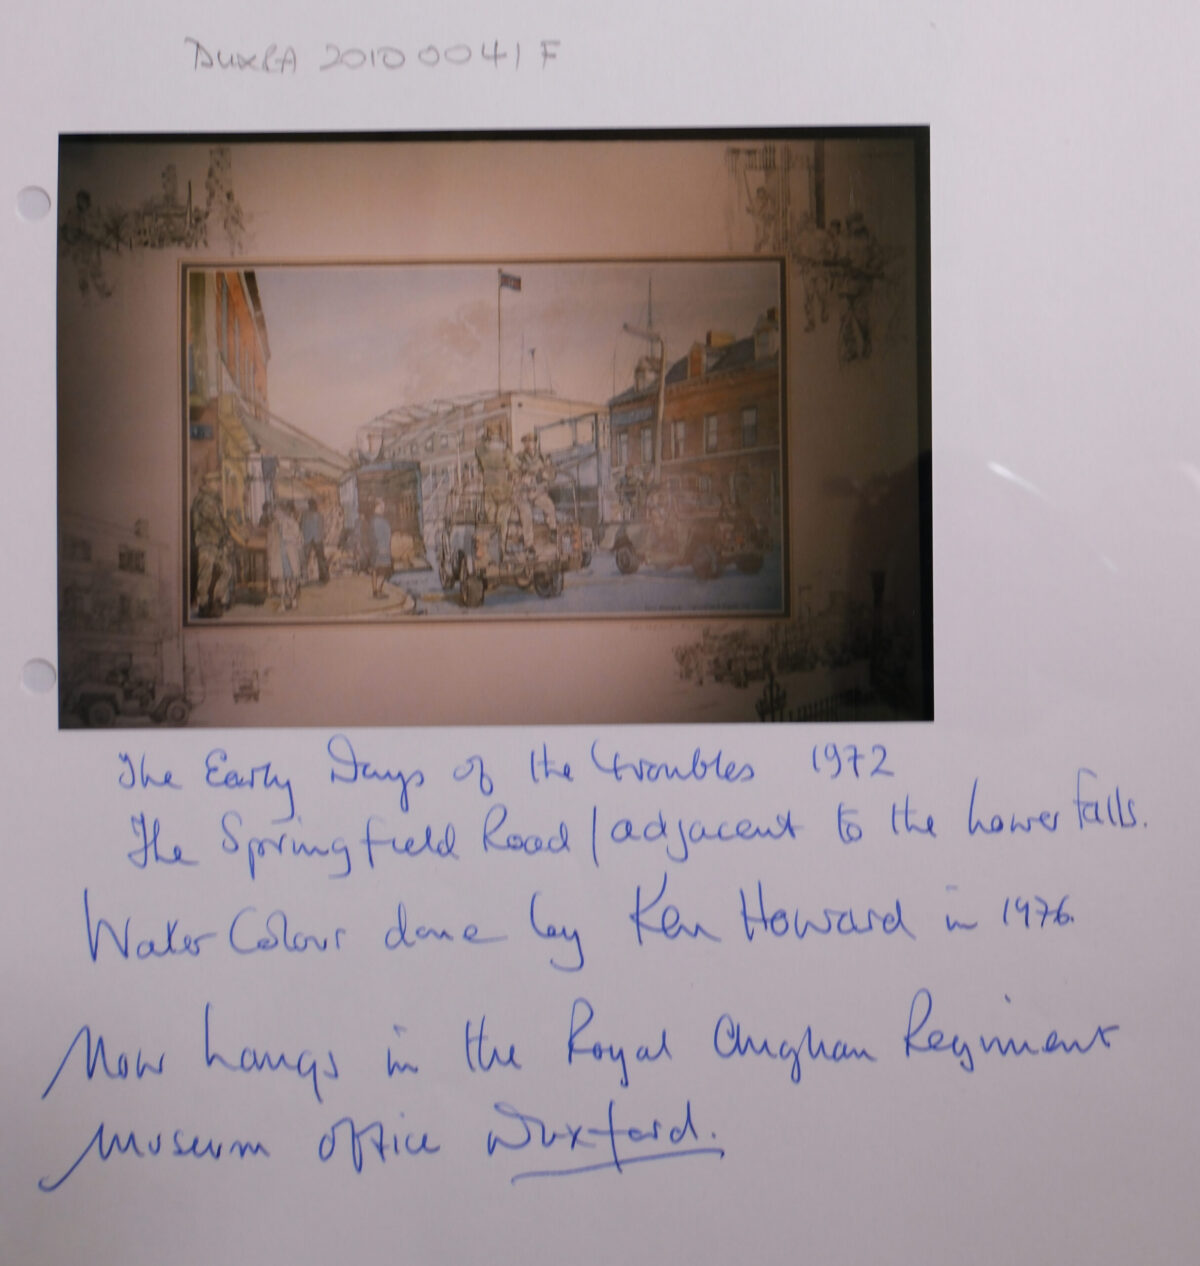 DUXRA 2010 0041 F
The Early Days of the Troubles 1972
The Springfield Road / adjacent to the Lower Falls.
Water Colour done by Ken Howard in 1976.
Now hangs in the Royal Anglian Regiment
Museum office Duxford.